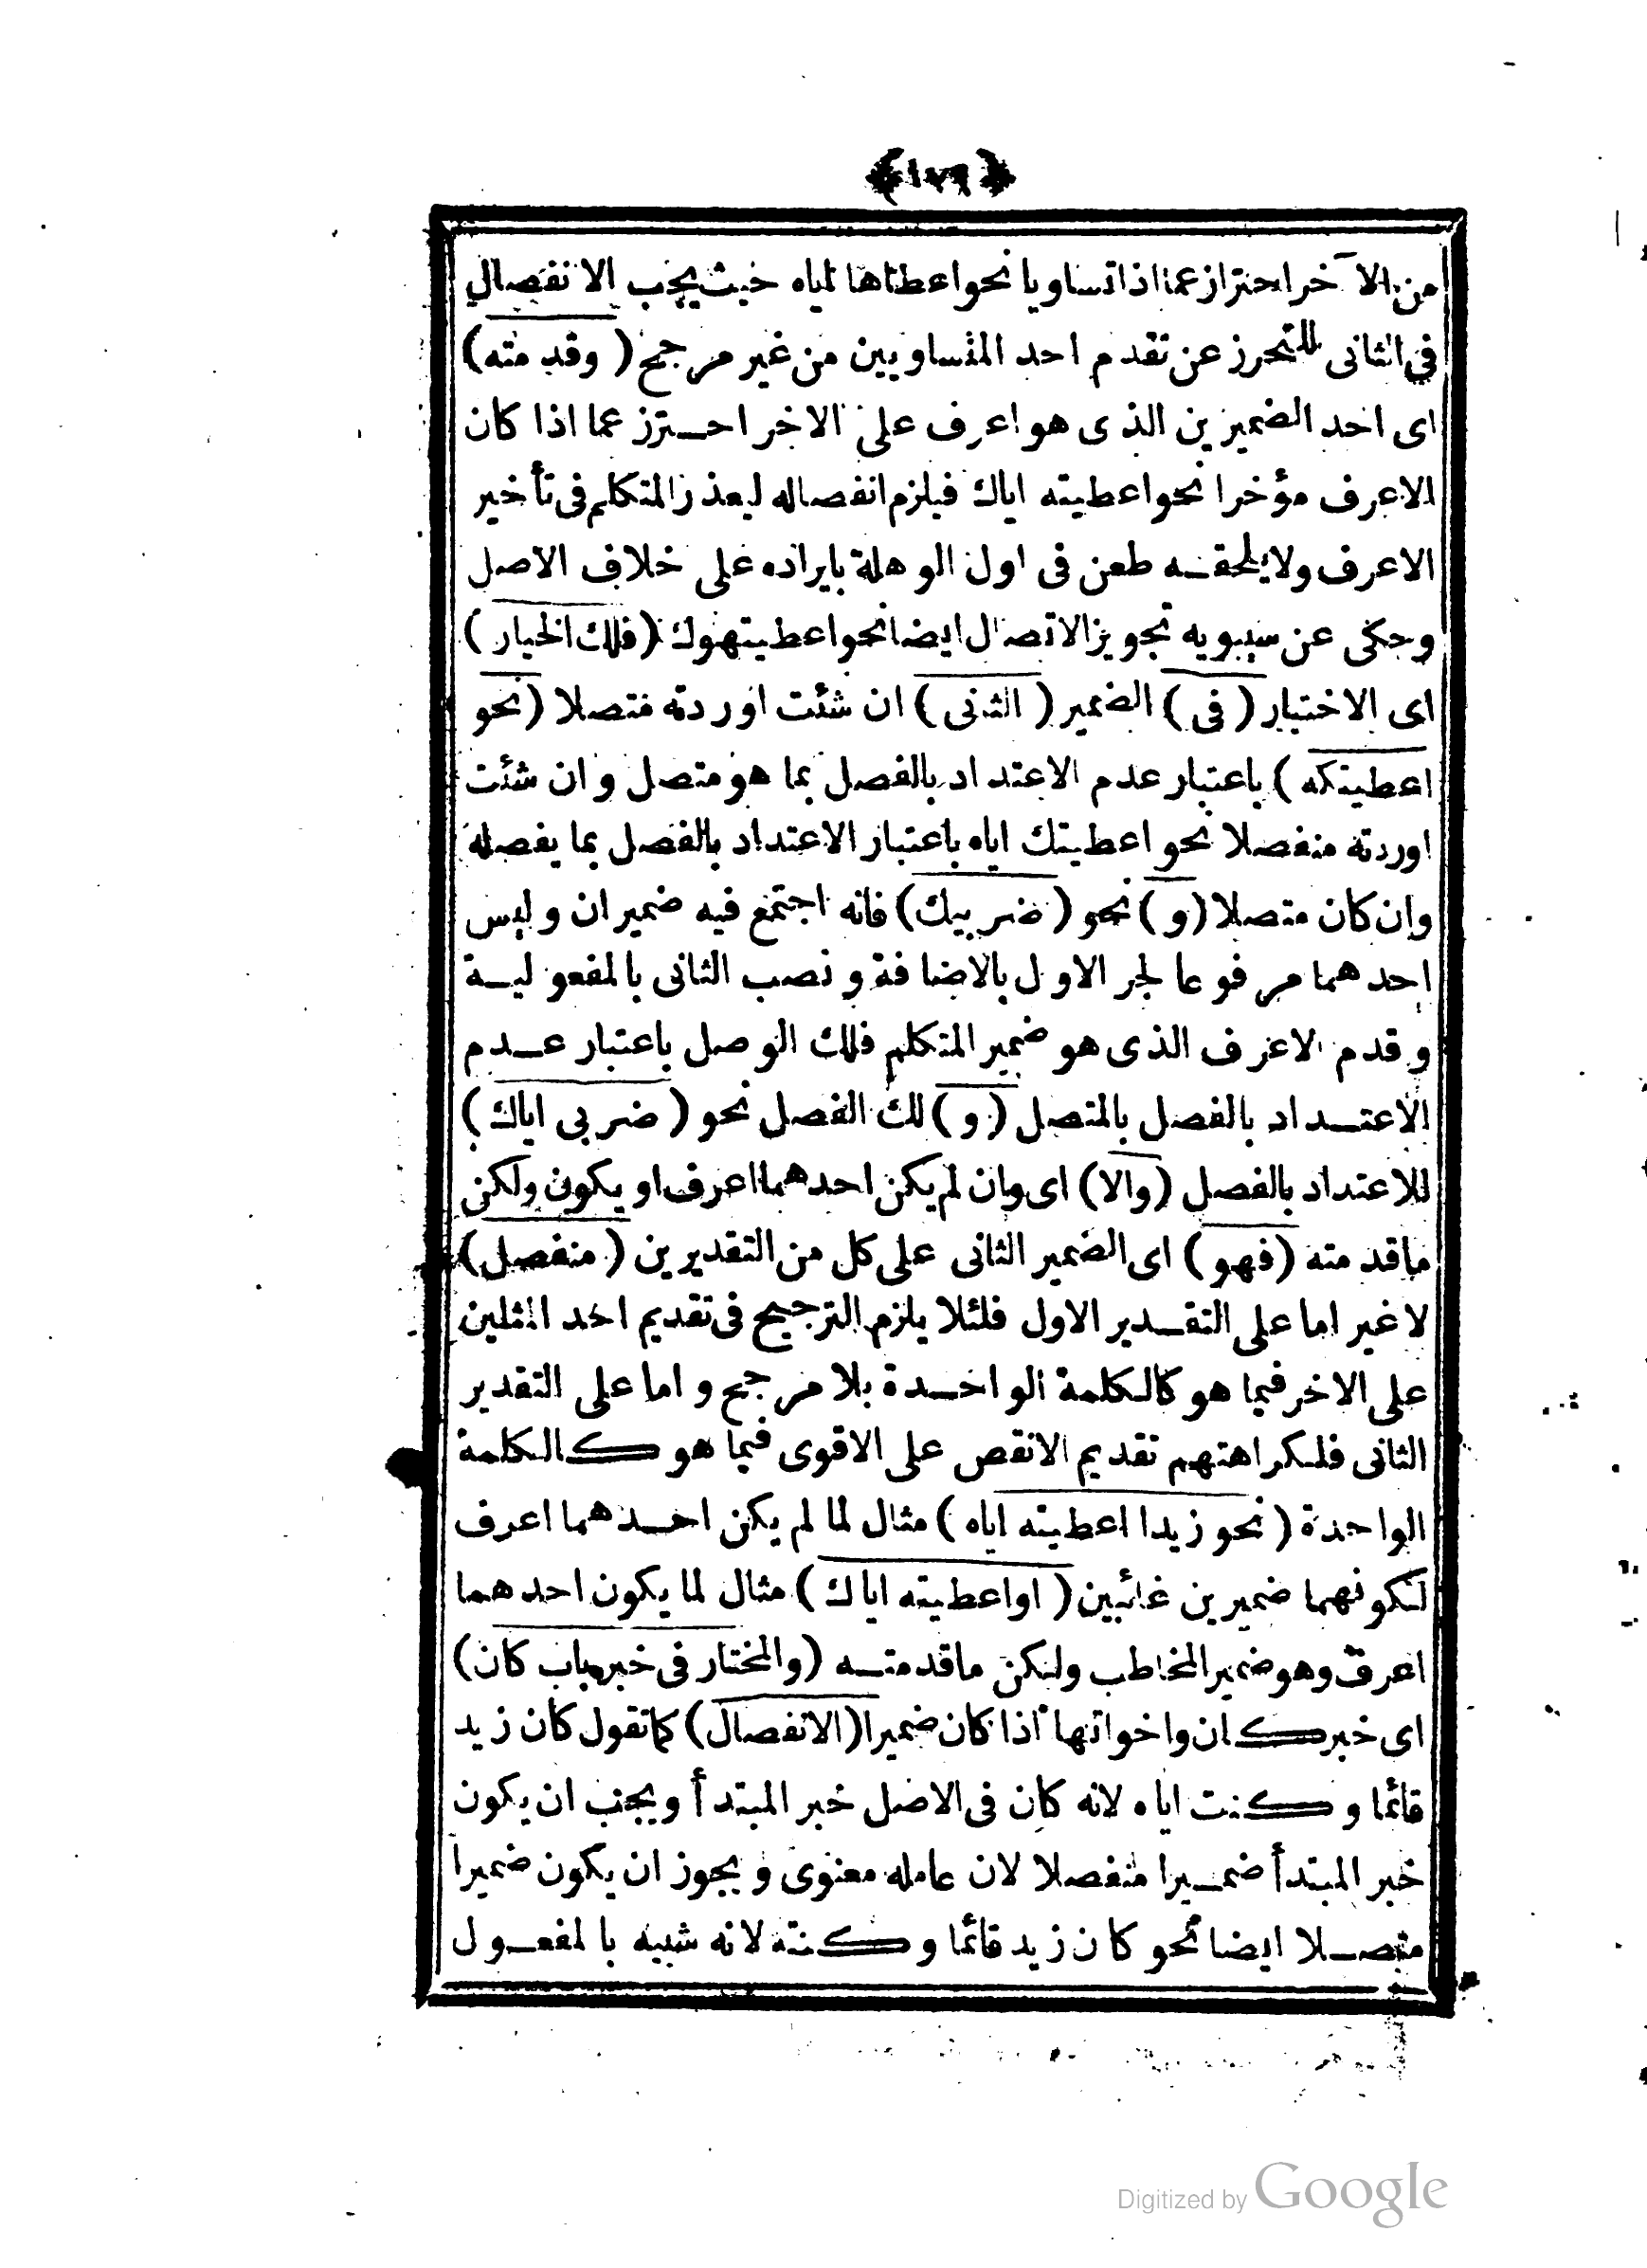 ﴿١٧٩﴾
من الآخر احتراز عما اذا تساويا نحو اعطاها اياه حيث يجب الانفصال
فى الثانى للتحرز عن تقدم احد المتساويين من غير مرجح (وقدمته)
اى احد الضميرين الذى هو اعرف على الاخر احترز عما اذا كان
الاعرف مؤخرا نحو اعطيته اياك فيلزم انفصاله ليعذر المتكلم فى تأخير
الاعرف ولا يلحقه طعن فى اول الوهلة بايراده على خلاف الاصل
وحكى عن سيبويه تجويز الاتصال ايضا نحو اعطيتهوك (فلك الخيار)
اى الاختيار (فى) الضمير (الثانى) ان شئت اوردته متصلا (نحو
اعطيتكه) باعتبار عدم الاعتداد بالفصل بما هو متصل وان شئت
اوردته منفصلا نحو اعطيتك اياه باعتبار الاعتداد بالفصل بما يفصله
وان كان متصلا (و) نحو (ضربيك) فانه اجتمع فيه ضميران وليس
احدهما مرفوعا لجر الاول بالاضافة ونصب الثانى بالمفعولية
وقدم الاعرف الذى هو ضمير المتكلم فلك الوصل باعتبار عدم
الاعتداد بالفصل بالمتصل (و) لك الفصل نحو (ضربى اياك)
للاعتداد بالفصل (والا) اى وان لم يكن احدهما اعرف او يكون ولكن
ماقدمته (فهو) اى الضمير الثانى على كل من التقديرين (منفصل)
لا غير اما على التقدير الاول فلئلا يلزم الترجيح فى تقديم احد المثلين
على الاخر فيما هو كالكلمة الواحدة بلا مرجح واما على التقدير
الثانى فلكراهتهم تقديم الانقص على الاقوى فيما هو كالكلمة
الواحدة (نحو زيدا اعطيته اياه) مثال لما لم يكن احدهما اعرف
لكونهما ضميرين غائبين (او اعطيته اياك) مثال لما يكون احدهما
اعرف وهو ضمير المخاطب ولكن ماقدمته (والمختار فى خبر باب كان)
اى خبر كان واخواتها اذا كان ضميرا (الانفصال) كما تقول كان زيد
قائما وكنت اياه لانه كان فى الاصل خبر المبتدأ ويجب ان يكون
خبر المبتدأ ضميرا منفصلا لان عامله معنوى ويجوز ان يكون ضميرا
متصلا ايضا نحو كان زيد قائما وكنته لانه شبيه بالمفعول
Digitized by Google